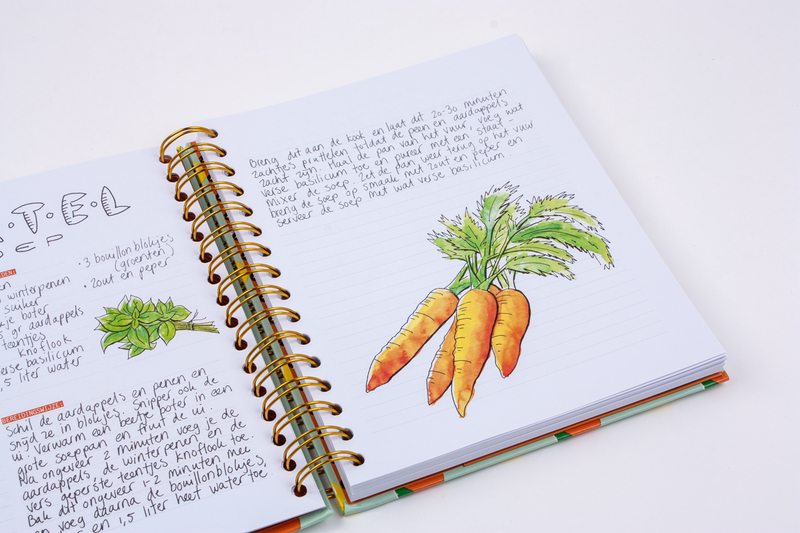 ·T·E·L
SOEP
DEN:
· 3 bouillonblokjes
(groenten)
· zout en peper
winterpenen
suiker
kje boter
5 gr aardappels
teentjes
knoflook
verse basilicum
,5 liter water
BEREIDINGSWIJZE:
Schil de aardappels en penen en
snijd ze in blokjes. Snipper ook de
ui. Verwarm een beetje boter in een
grote soeppan en fruit de ui.
Na ongeveer 2 minuten voeg je de
aardappels, de winterpenen en de
vers geperste teentjes knoflook toe.
Bak dit ongeveer 1-2 minuten mee
en voeg daarna de bouillonblokjes,
en 1,5 liter heet water toe
Breng dit aan de kook en laat dit 20-30 minuten
zachtjes pruttelen totdat de peen en aardappels
zacht zijn. Haal de pan van het vuur, voeg wat
verse basilicum toe en pureer met een staaf-
mixer de soep. Zet de pan weer terug op het vuur
breng de soep op smaak met zout en peper en
serveer de soep met wat verse basilicum.